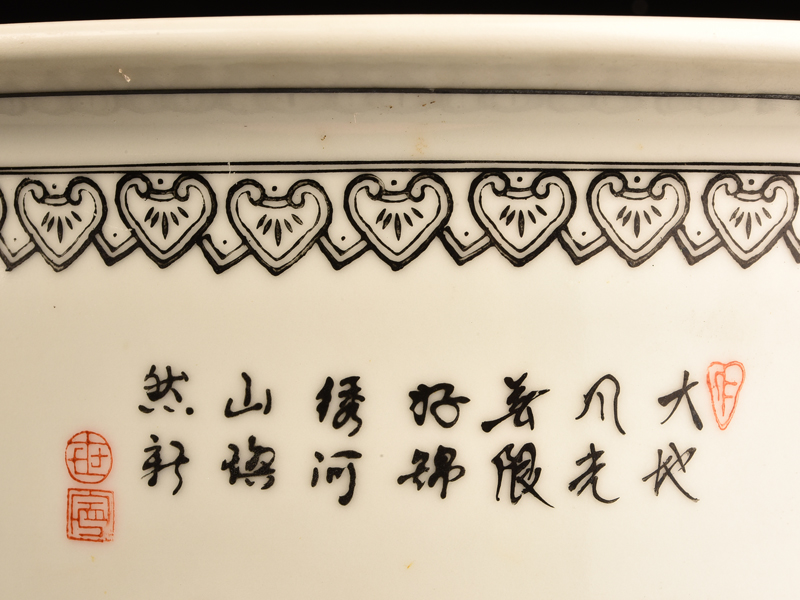 大地
风光
无限
好锦
绣河
山焕
然新